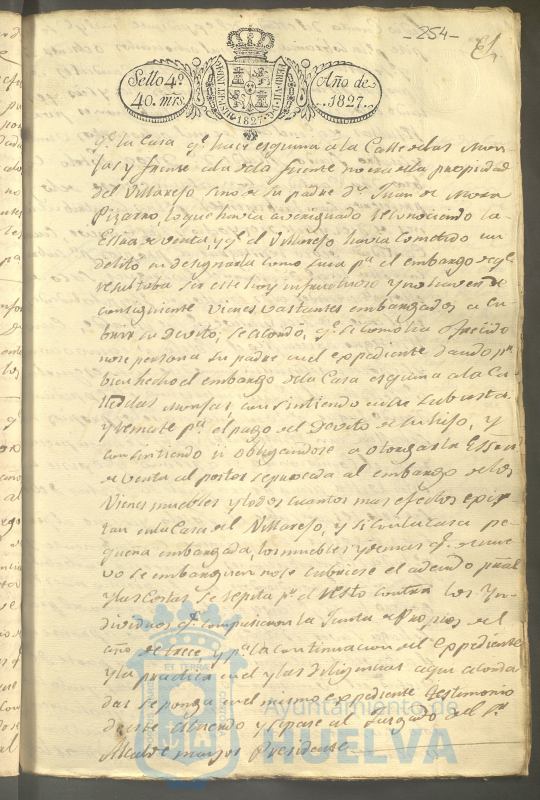 -254-
Sello 4º
40. mrs.
Año de
1827.
qe. la Casa qe. hace esquina a la Calle de las Mon-
jas y frente a la de la fuente no era de la propiedad
del Villarejo sino de su padre Dn. Juan de Mora
Pizarro, lo que havia averiguado reconociendo la
Essra de venta, y qe. el Villarejo havia cometido un
delito en designarla como suya pa. el embargo de qe.
resultaba ser este hoy infructuoso y no haviendo
consiguiente vienes vastantes embargados a cu-
brir su Devito; se acordó, qe. si como ha ofrecido
no se persona su padre en el expediente dando pr.
bien hecho el embargo de la Casa esquina a la Ca-
lle de las Monjas, consintiendo en su subasta
y remate pa. el pago del Devito de su hijo, y
consintiendo u obligandose a otorgar la Essra
de venta al postor se proceda al embargo de los
Vienes muebles y todos cuantos mas efectos exis-
tan en la Casa del Villarejo, y si con la casa pe-
queña embargada, los muebles y demas qe. de nue-
vo se embarguen no se cubriese el adeudo pral
y las Costas se repita pr. el resto contra los Yn-
dividuos qe. compusieron la Junta de Propios del
año de trece y pa. la continuacion del Expediente
y la practica en el y las diligencias aqui acorda
das se ponga en el mismo expediente testimonio
de este acuerdo y se pase al Juzgado del Sr.
Alcalde mayor Presidente
Ayuntamiento de
HUELVA